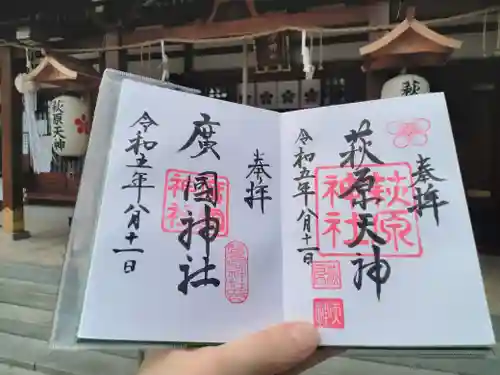 奉拝
萩原天神
令和五年八月十一日
萩原
神社
奉拝
廣國神社
令和五年八月十一日
萩原天神
萩原